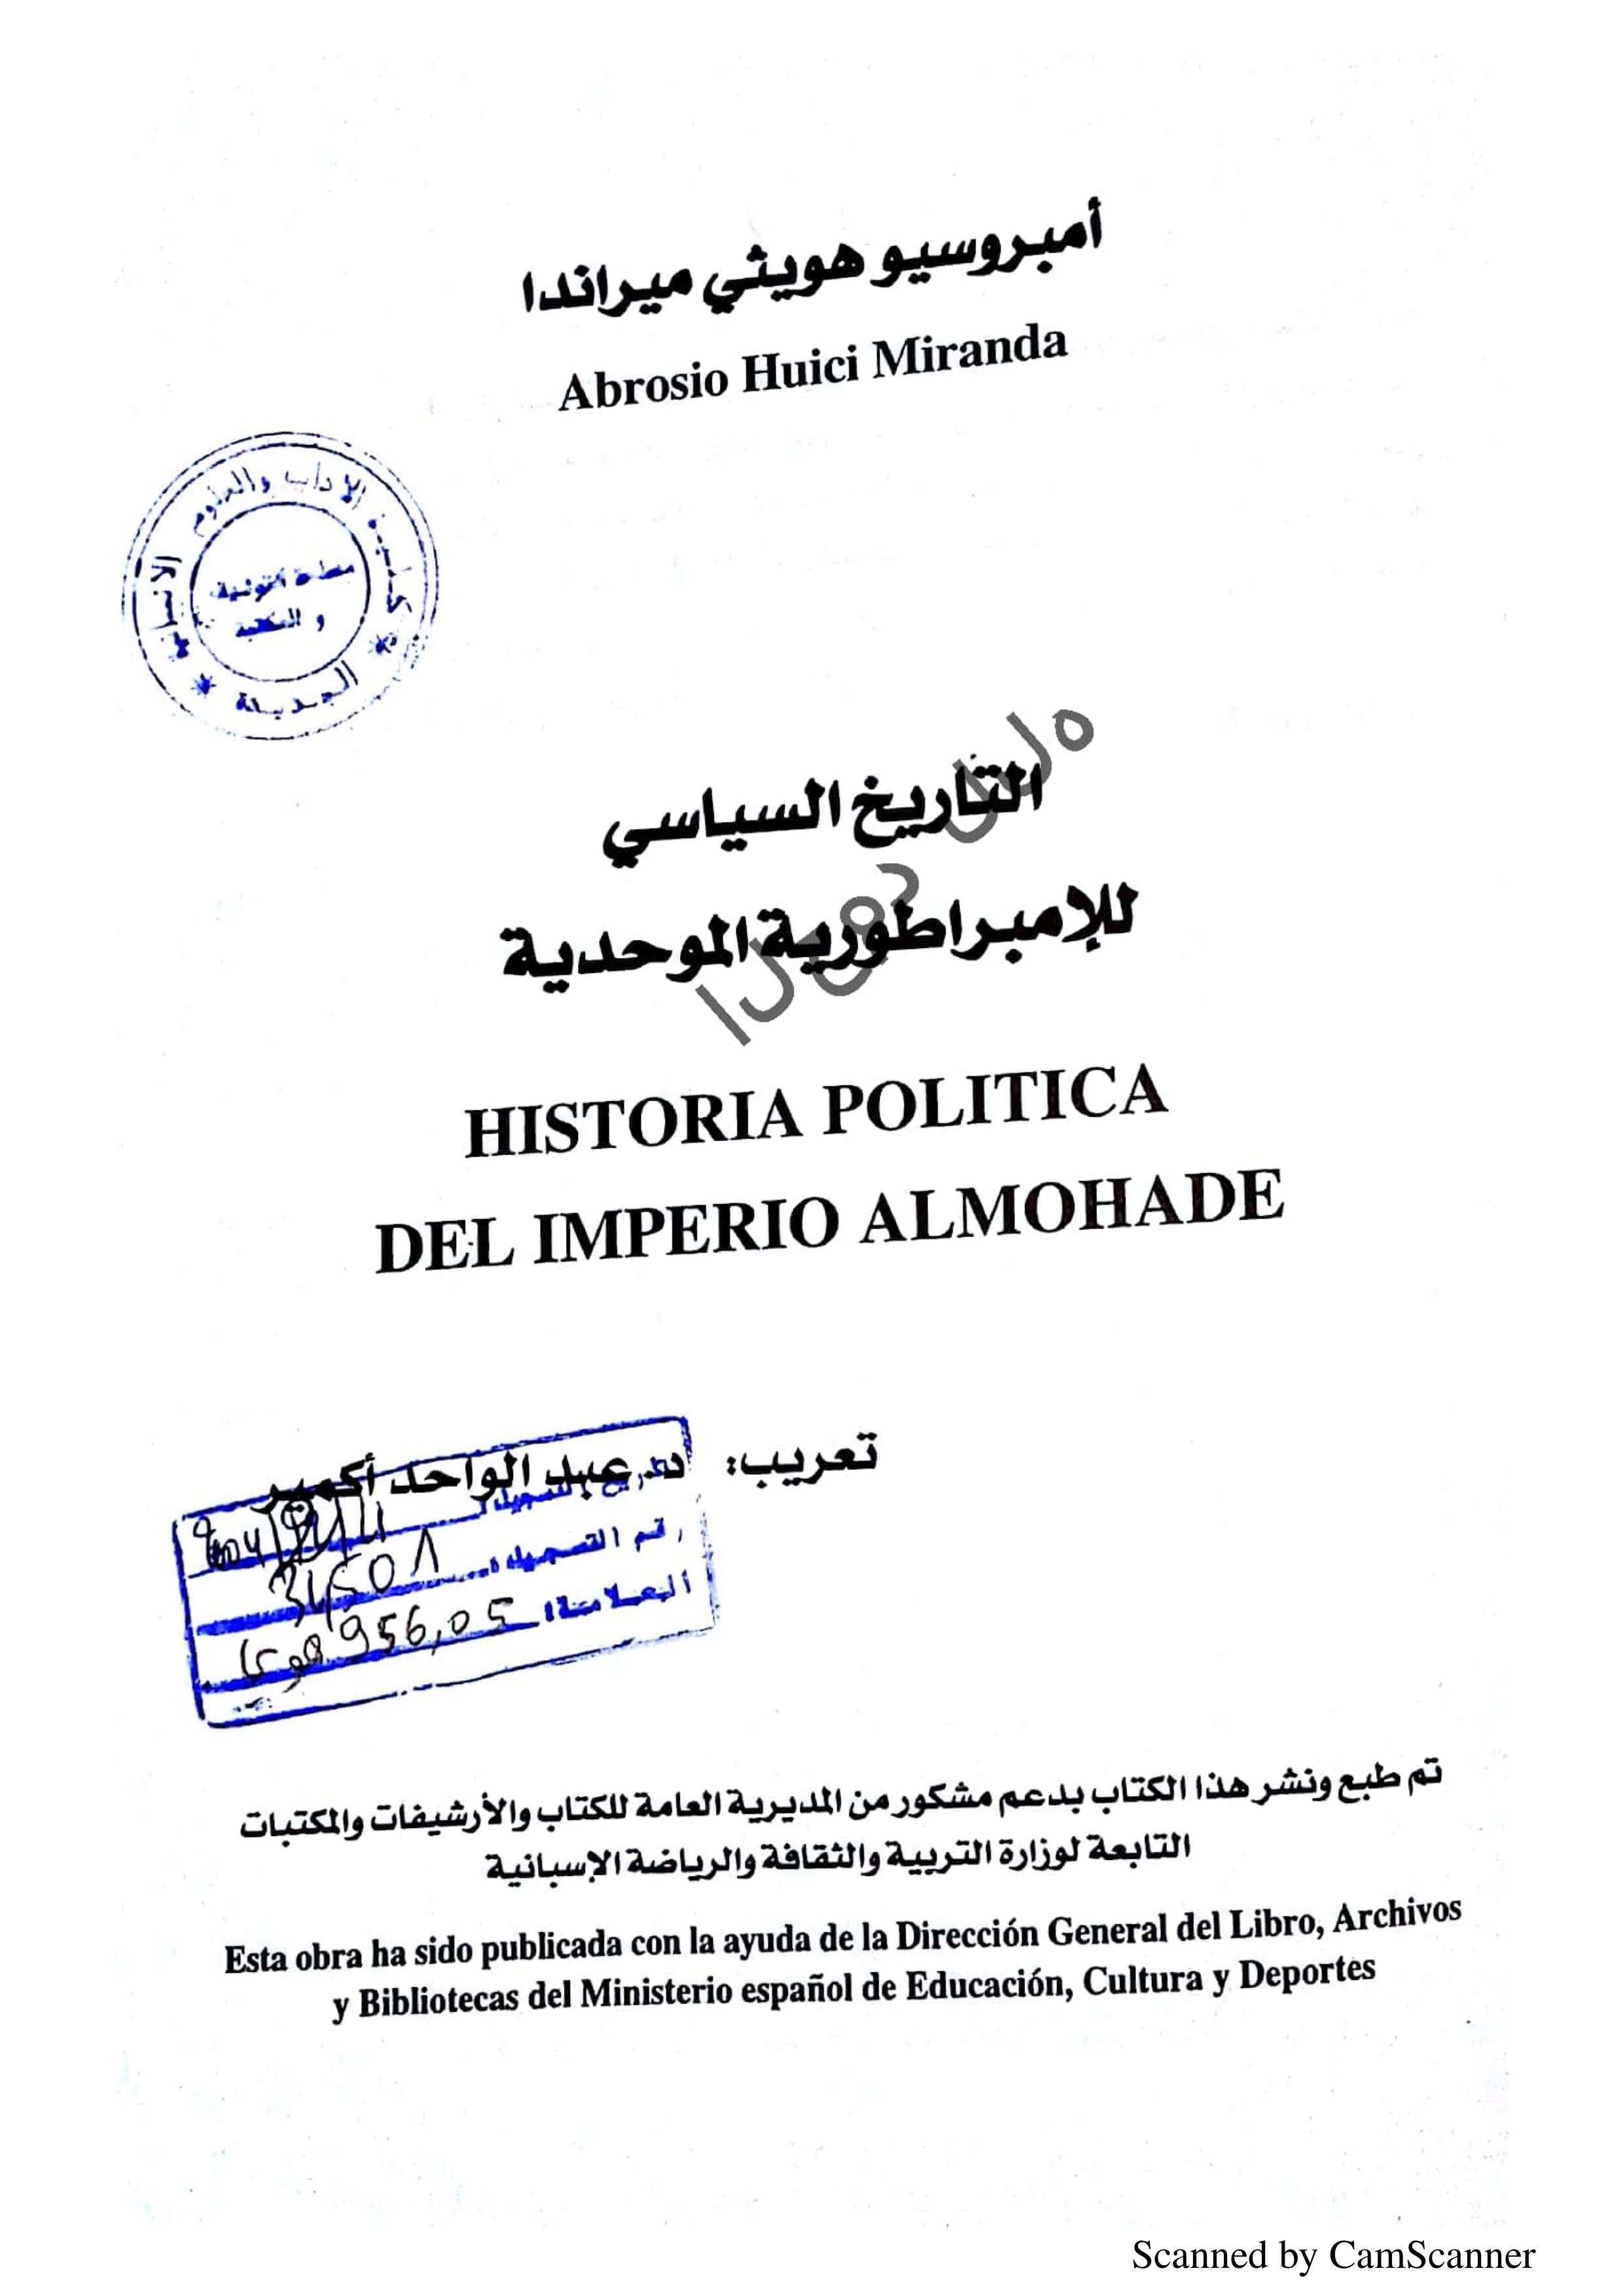 أمبروسيو هويثي ميراندا
Abrosio Huici Miranda
كلية الآداب والعلوم الإنسانية
الجديدة
التاريخ السياسي
للإمبراطورية الموحدية
HISTORIA POLITICA
DEL IMPERIO ALMOHADE
تعريب: د. عبد الواحد أكمير
رقم التسجيل: 34501
العلامة: 956,05
تم طبع ونشر هذا الكتاب بدعم مشكور من المديرية العامة للكتاب والأرشيفات والمكتبات
التابعة لوزارة التربية والثقافة والرياضة الإسبانية
Esta obra ha sido publicada con la ayuda de la Dirección General del Libro, Archivos
y Bibliotecas del Ministerio español de Educación, Cultura y Deportes
Scanned by CamScanner